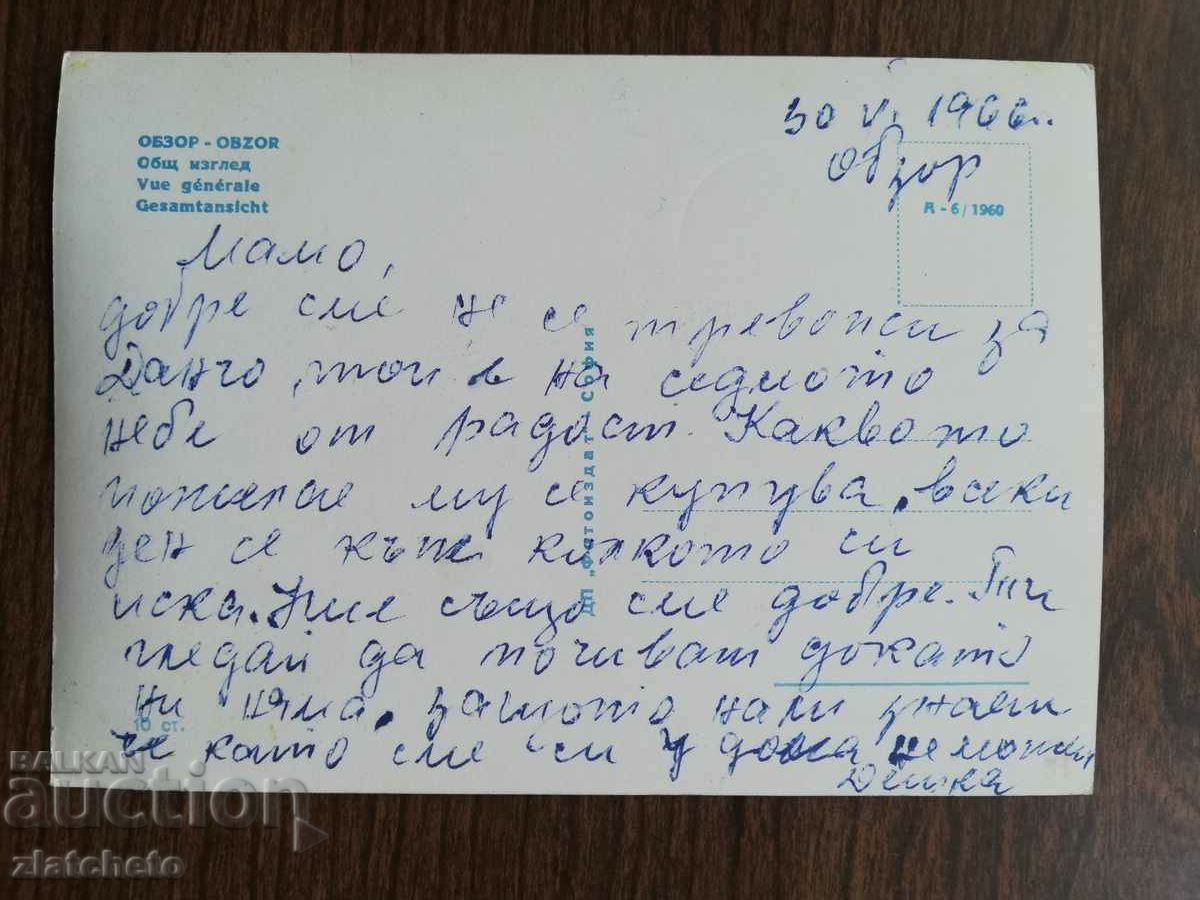 30 V. 1966г.
Обзор
ОБЗОР - OBZOR
Общ изглед
Vue générale
Gesamtansicht
R - 6 / 1960
Мамо,
добре сме не се тревожи за
Данчо, той е на седмото
небе от радост. Каквото
пожелае му се купува, всеки
ден се къпе колкото си
иска. Ние също сме добре. Ти
гледай да почиваш докато
ни няма, защото нали знаеш
че като сме си у дома не можеш
Дешка
ДП „Фотоиздат“ София
10 ст.
BALKAN
auction
zlatcheto